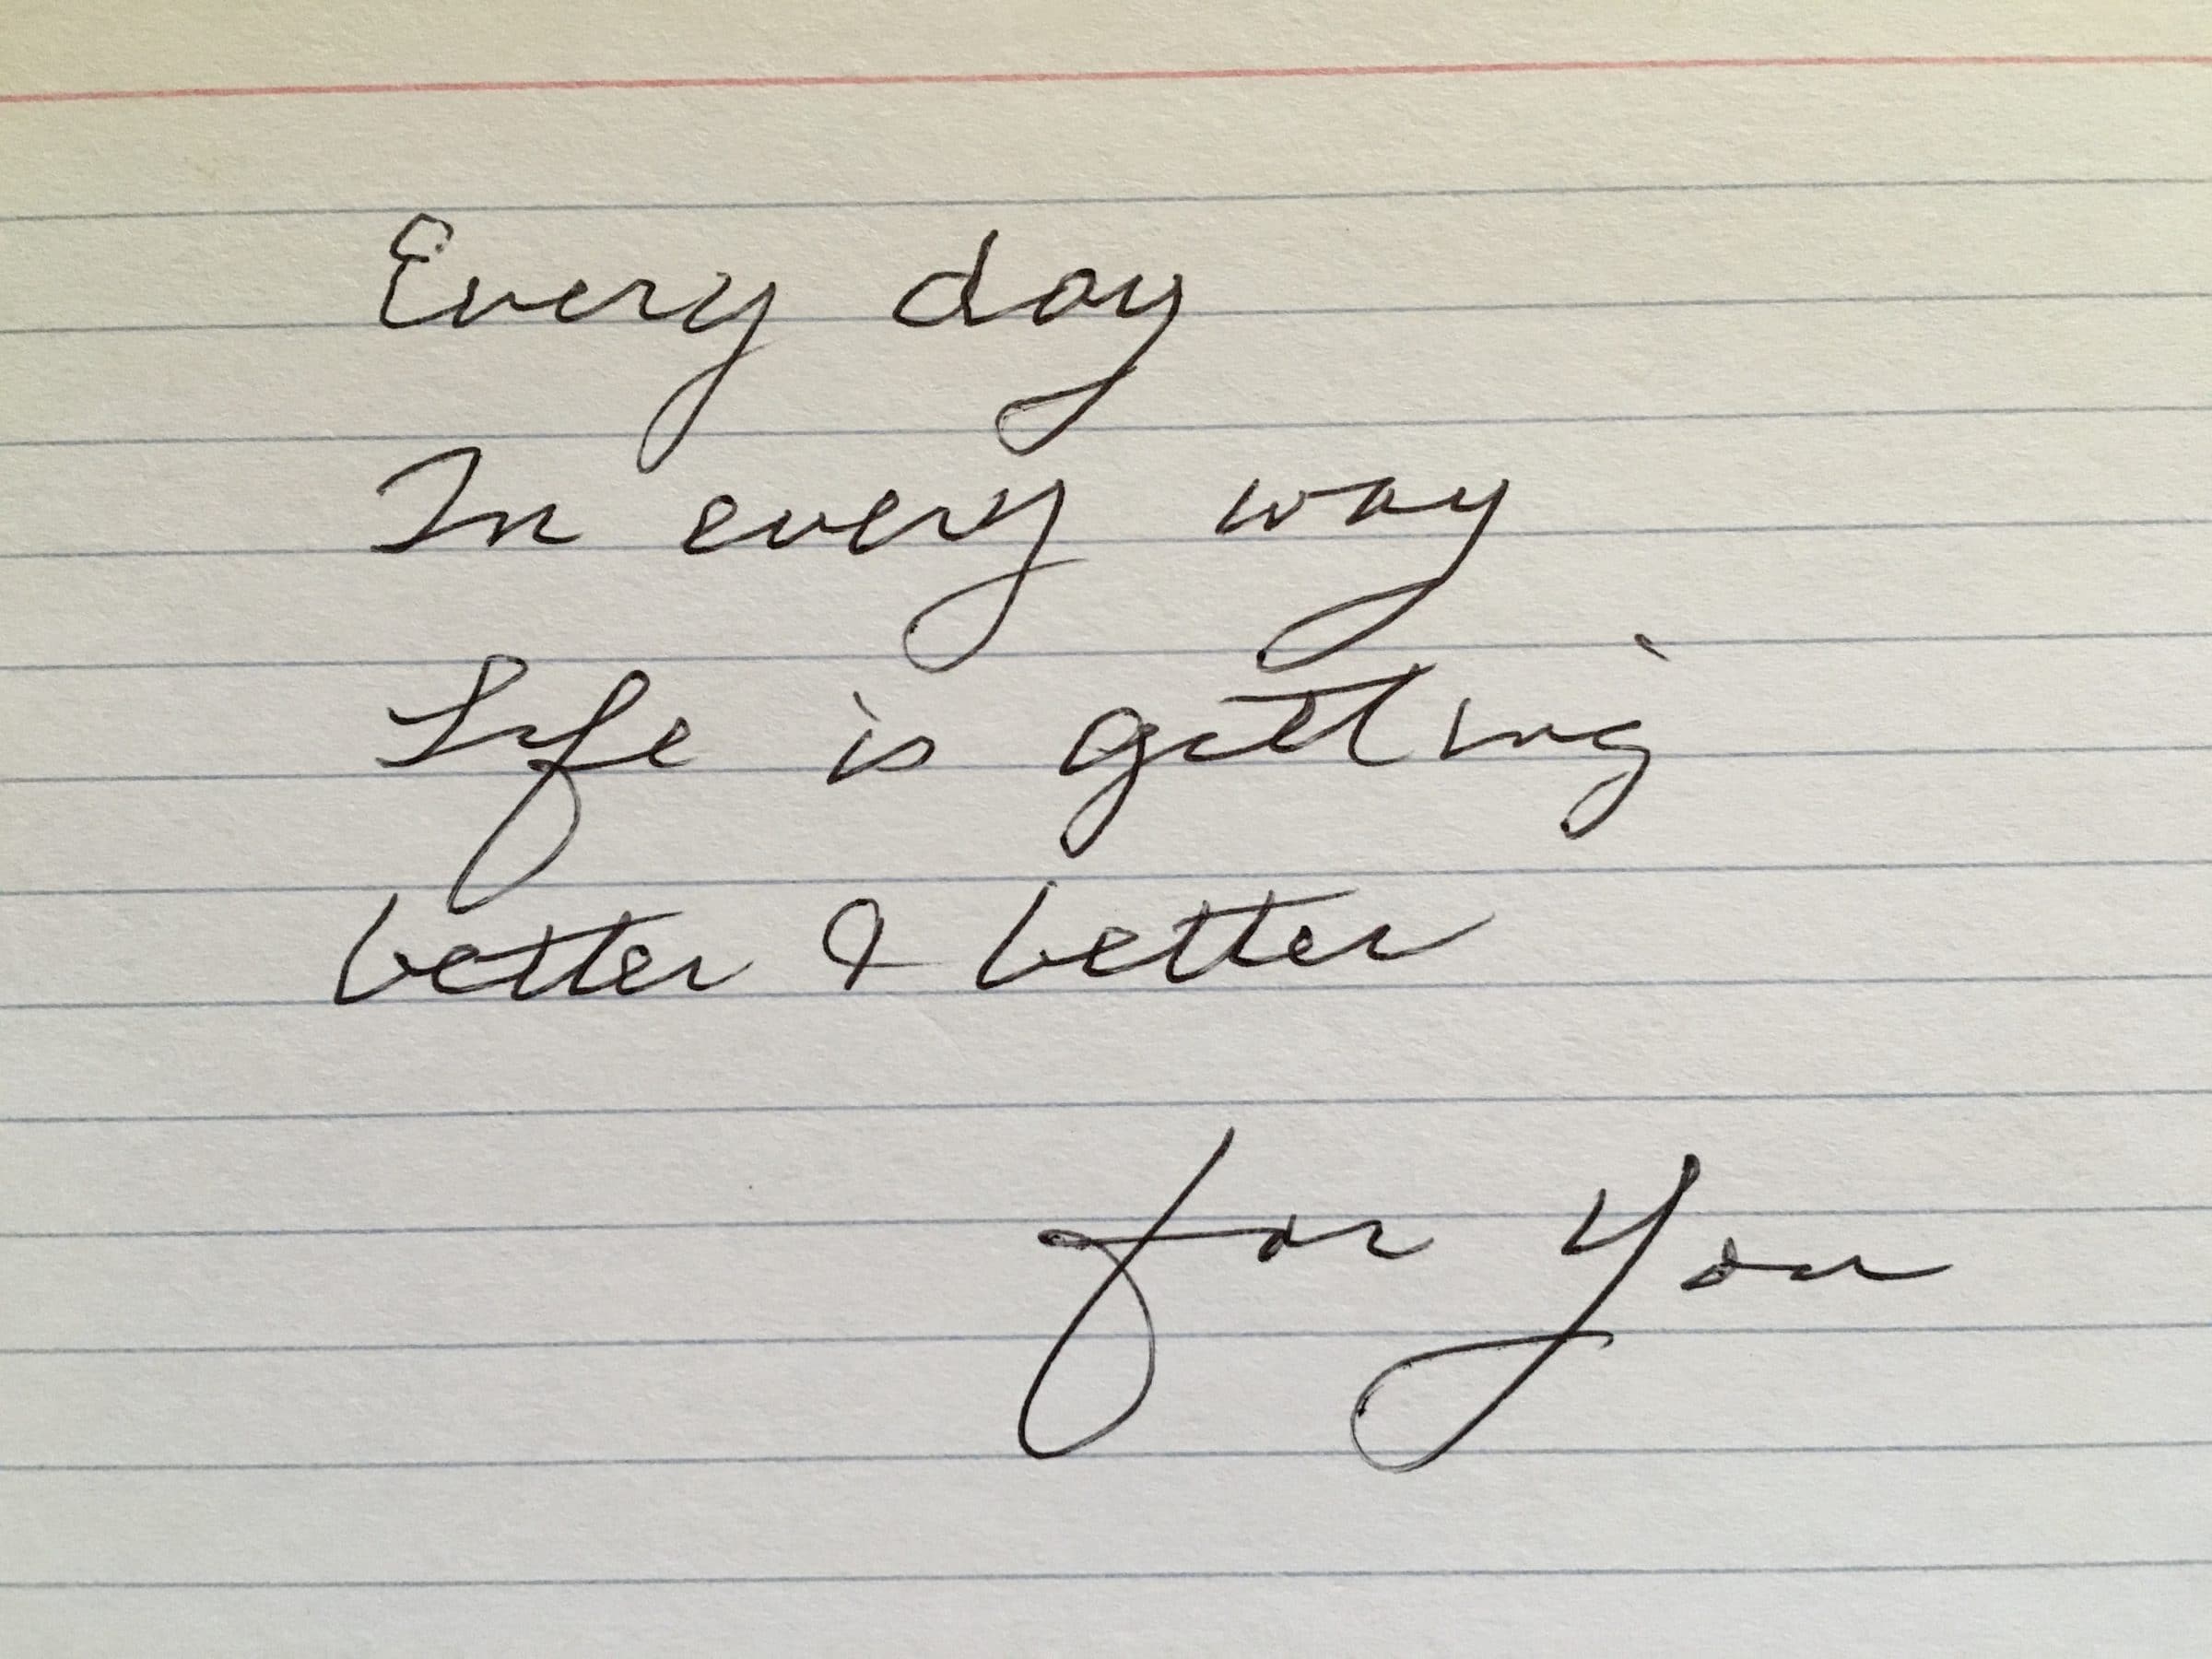 Every day
In every way
Life is getting
better & better
for You